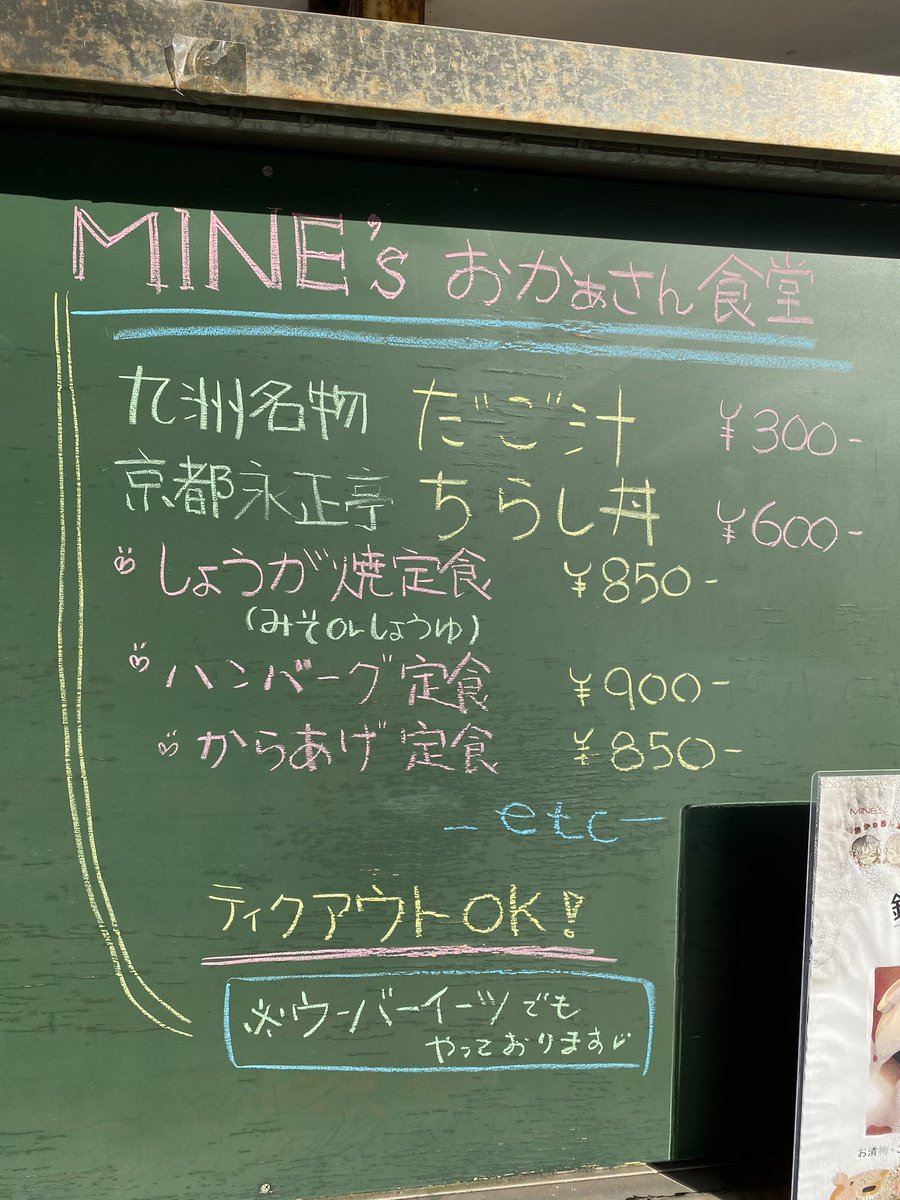 MINE's おかぁさん食堂
九州名物 だご汁 ¥300-
京都永正亭 ちらし丼 ¥600-
しょうが焼定食 ¥850-
(みそorしょうゆ)
ハンバーグ定食 ¥900-
からあげ定食 ¥850-
-etc-
ティクアウトOK!
※ウーバーイーツでも
やっております
MINE's
お漬物・